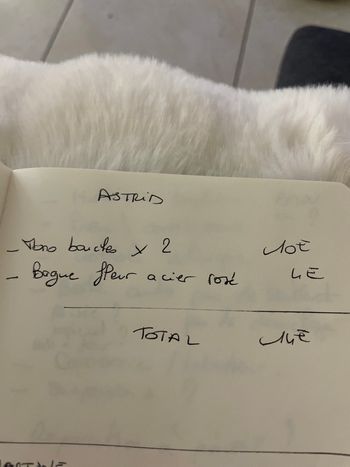 ASTRID
- Mono boucles x 2 10€
- Bague fleur acier rosé 4€
TOTAL 14€